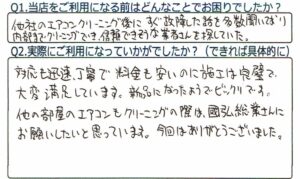 Q1.当店をご利用になる前はどんなことでお困りでしたか？
他社のエアコンクリーニング後に、すぐ故障した話を複数聞いており
内部までクリーニングでき、信頼できそうな業者さんを探していた。
Q2.実際にご利用になっていかがでしたか？（できれば具体的に）
対応も迅速、丁寧で料金も安いのに施工は完璧で、
大変満足しています。新品になったようでビックリです。
他の部屋のエアコンもクリーニングの際は、國弘総業さんに
お願いしたいと思っています。今回はありがとうございました。